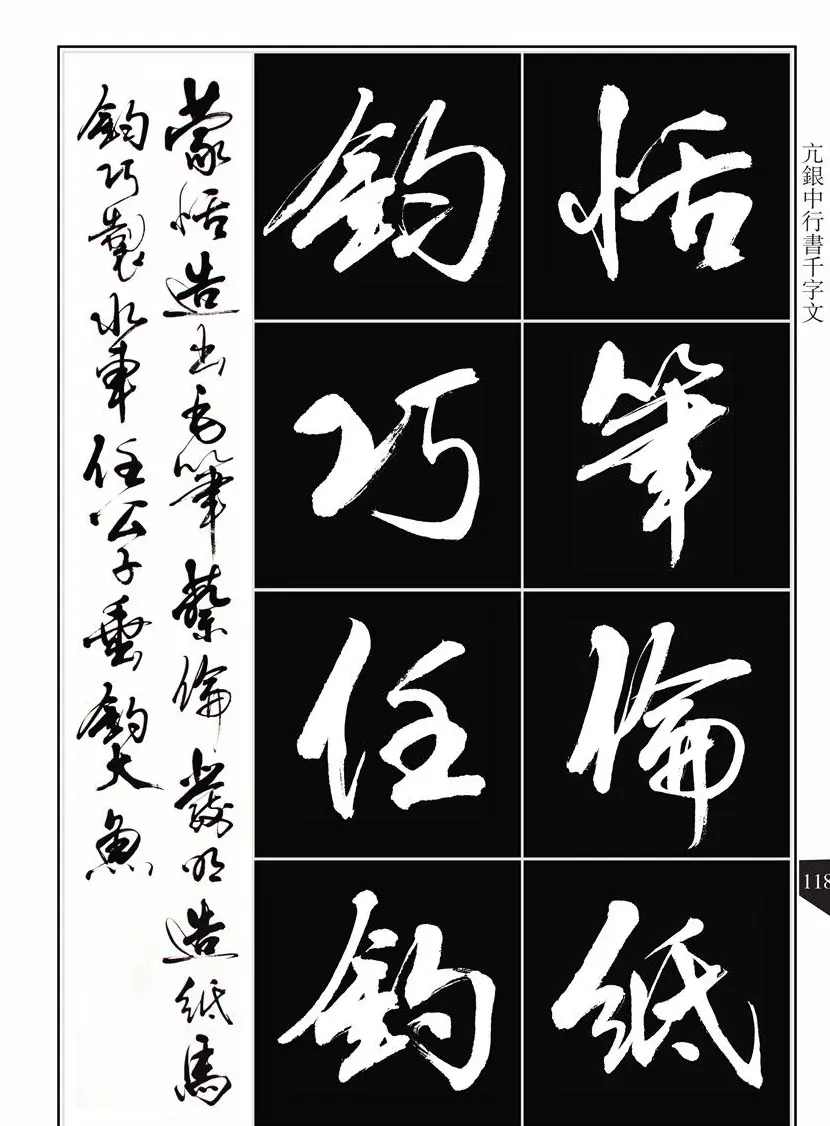 亢銀中行書千字文
118
恬筆倫紙
鈞巧任鈞
蒙恬造出毛筆蔡倫發明造紙馬
鈞巧製水車任公子垂鈞大魚